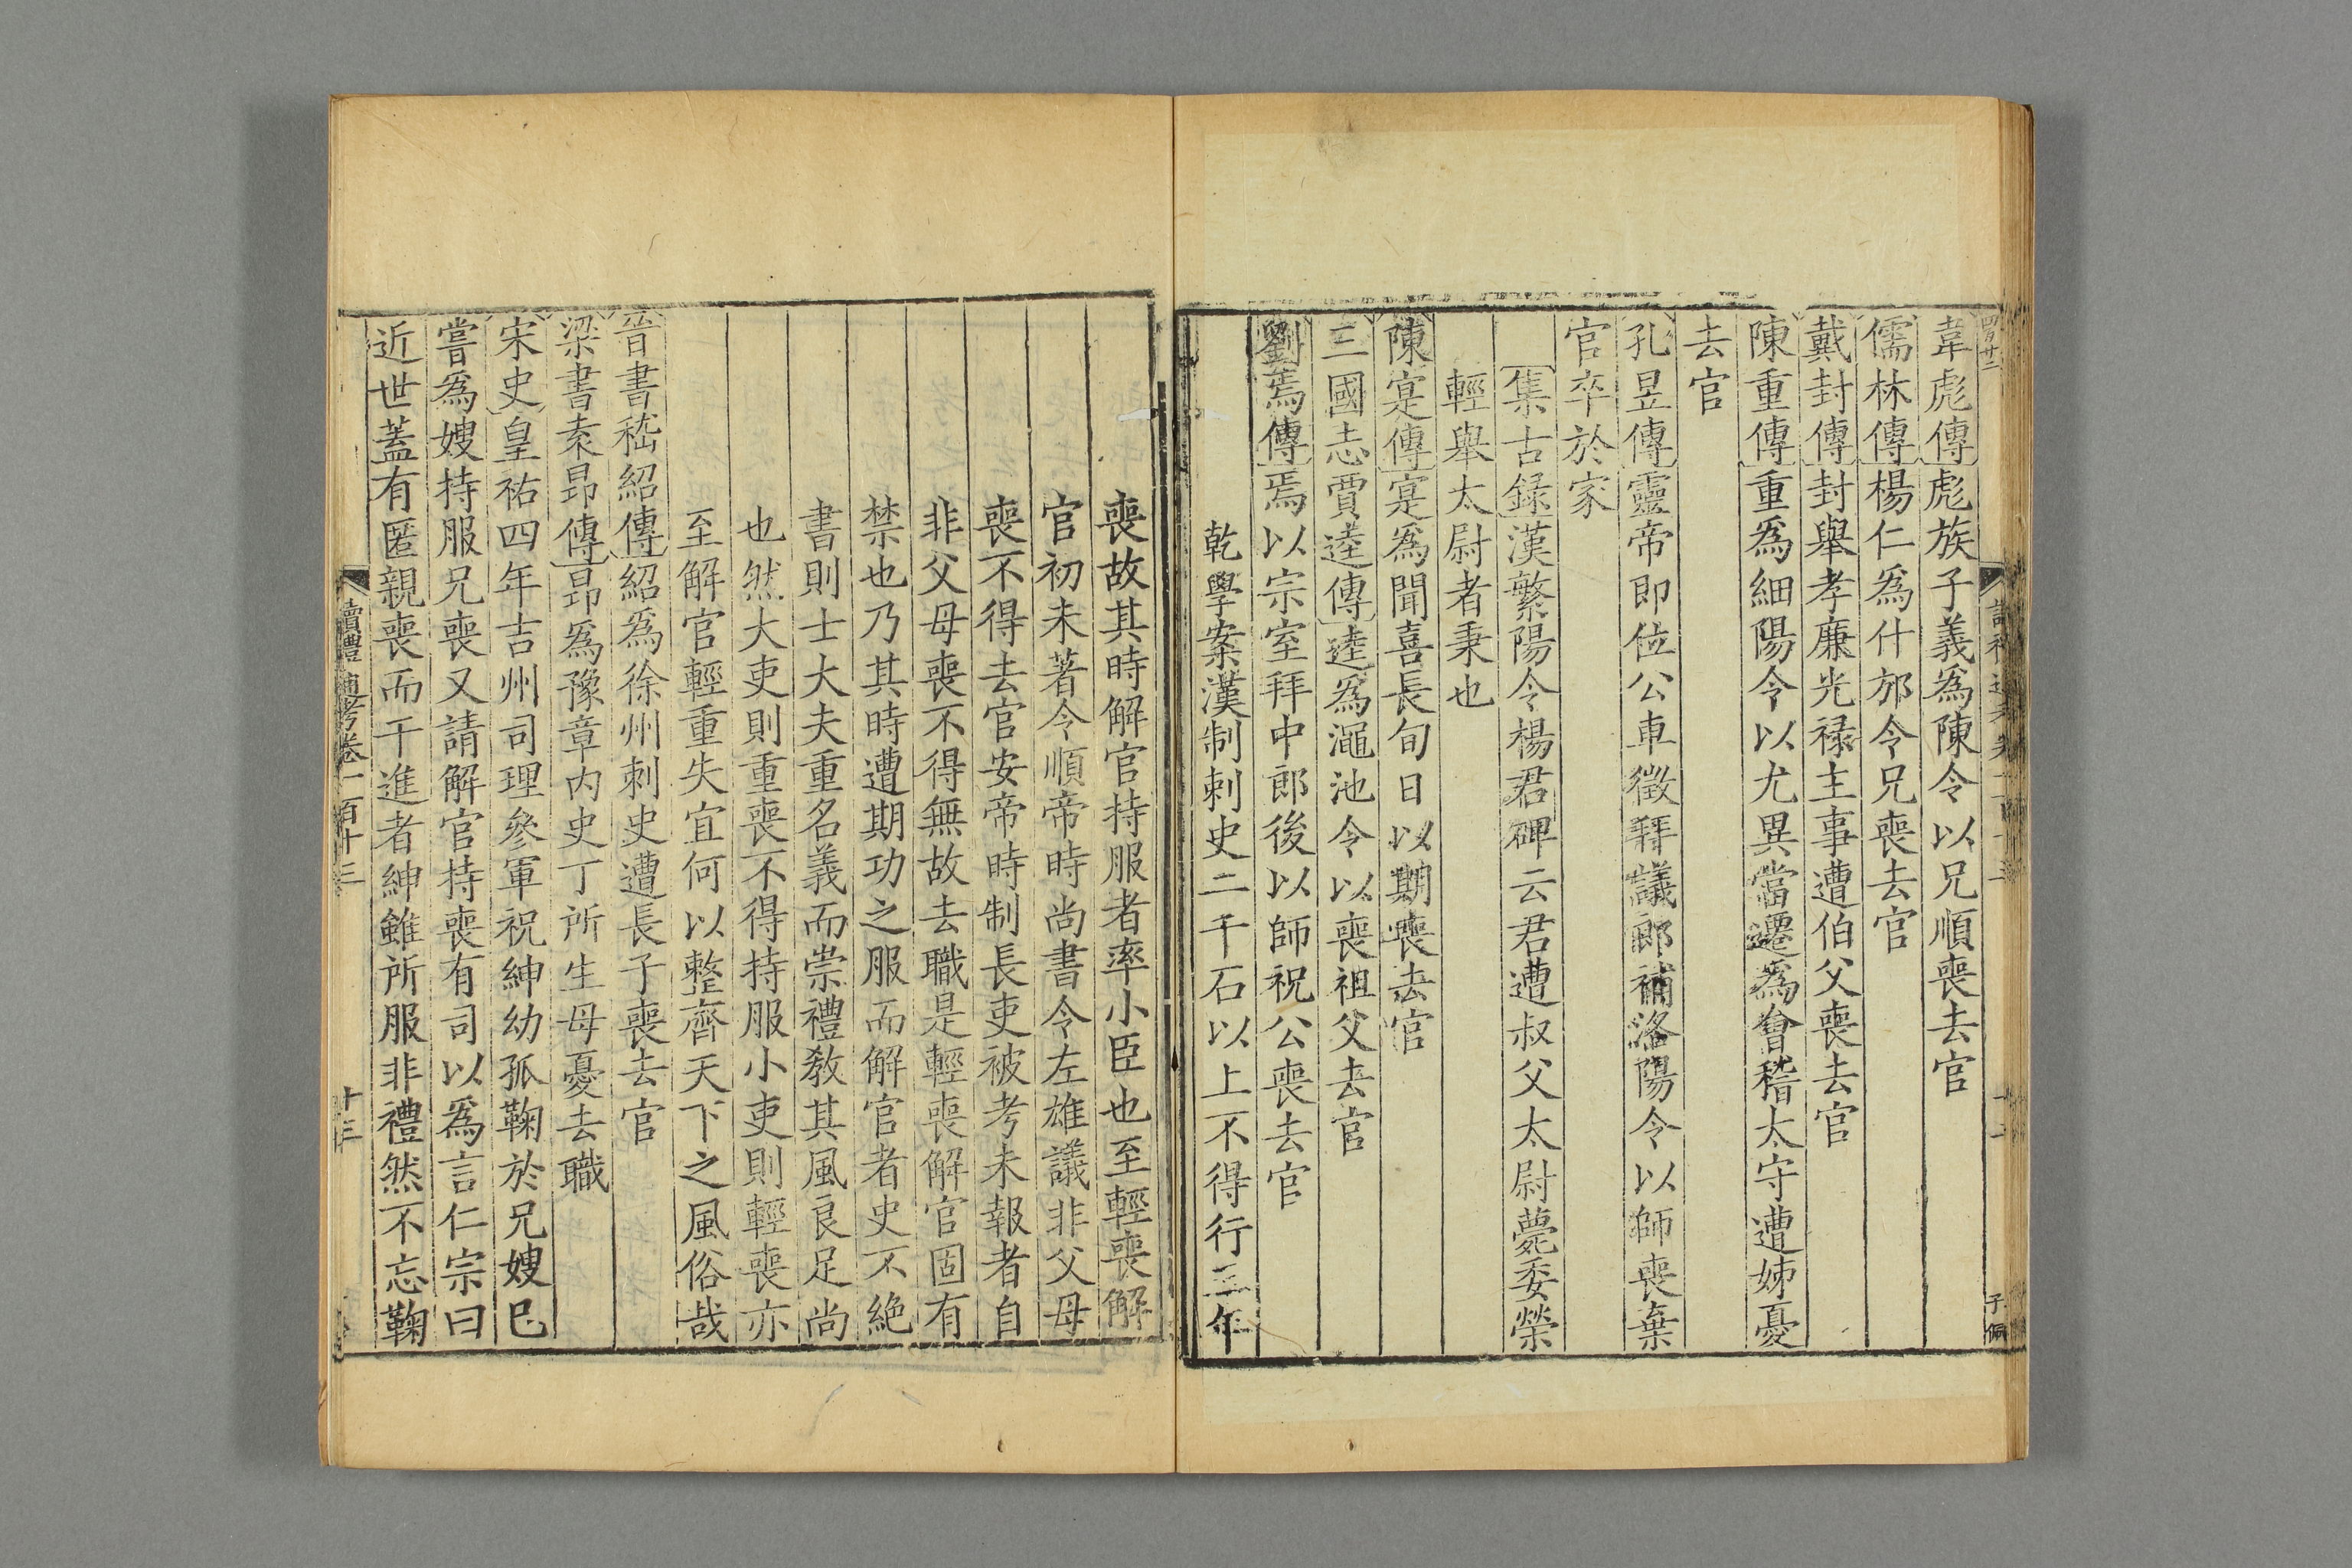 韋彪傳彪族子義爲陳令以兄順喪去官
儒林傳楊仁爲什邡令兄喪去官
戴封傳封舉孝廉光祿主事遭伯父喪去官
陳重傳重爲細陽令以尤異當遷爲會稽太守遭姊憂
去官
孔昱傳靈帝即位公車徵拜議郎補洛陽令以師喪棄
官卒於家
集古録漢繁陽令楊君碑云君遭叔父太尉薨委榮
輕舉太尉者秉也
陳寔傳寔爲聞喜長旬日以期喪去官
三國志賈逵傳逵爲澠池令以喪祖父去官
劉焉傳焉以宗室拜中郎後以師祝公喪去官
乾學案漢制刺史二千石以上不得行三年
喪故其時解官持服者率小臣也至輕喪解
官初未著令順帝時尚書令左雄議非父母
喪不得去官安帝時制長吏被考未報者自
非父母喪不得無故去職是輕喪解官固有
禁也乃其時遭期功之服而解官者史不絶
書則士大夫重名義而崇禮敎其風良足尚
也然大吏則重喪不得持服小吏則輕喪亦
至解官輕重失宜何以整齊天下之風俗哉
晉書嵇紹傳紹爲徐州刺史遭長子喪去官
梁書袁昂傳昂爲豫章内史丁所生母憂去職
宋史皇祐四年吉州司理參軍祝紳幼孤鞠於兄嫂已
嘗爲嫂持服兄喪又請解官持喪有司以爲言仁宗曰
近世蓋有匿親喪而干進者紳雖所服非禮然不忘鞠
讀禮通考卷一百十三
十三